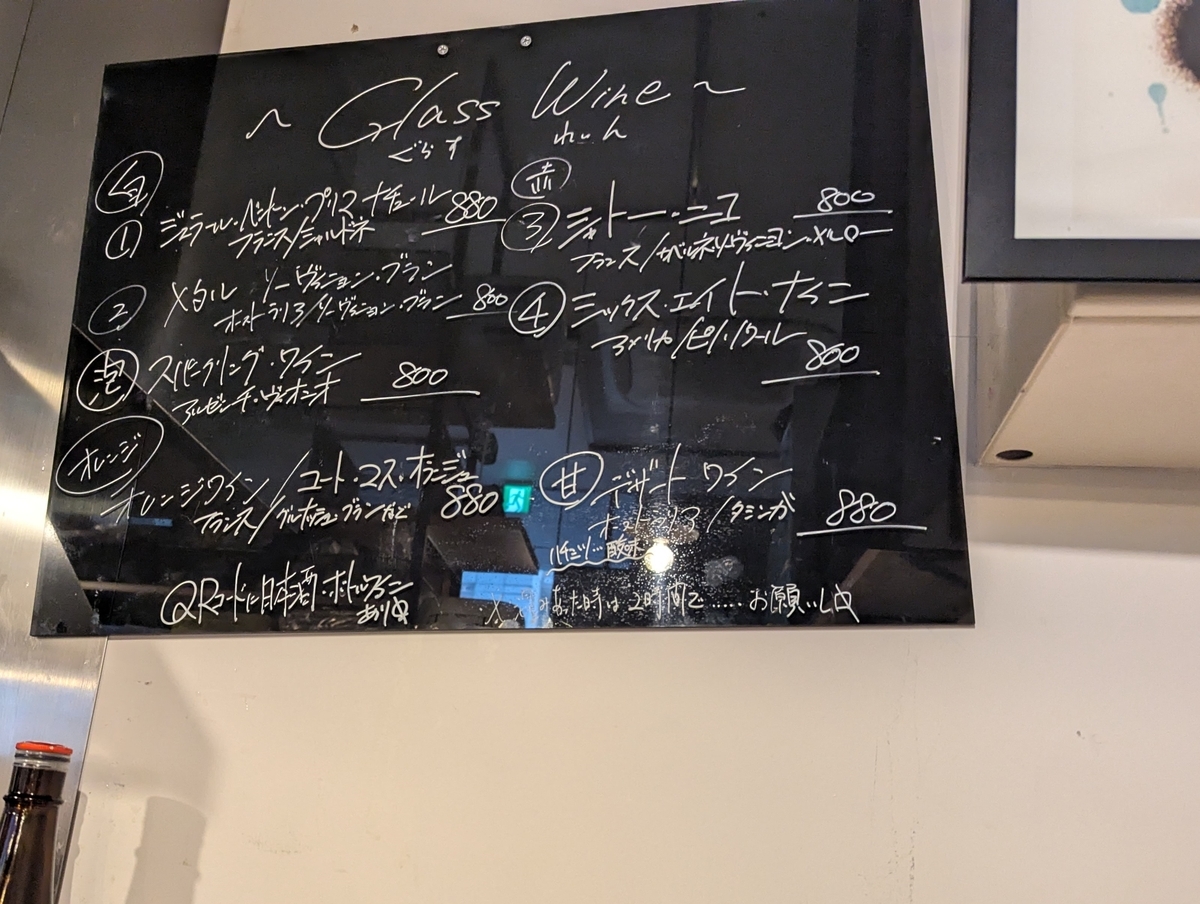 ~ Glass Wine ~
ぐらす わいん
白
① ジェラール・ベルトン・プリス ナチュール 880
フランス/シャルドネ
② メタル ソーヴィニョン・ブラン
オーストラリア/ソーヴィニョン・ブラン 800
泡 スパークリング・ワイン 800
アルゼンチン・ヴィオニエ
オレンジ
オレンジワイン/ユート・コス・オランジュ 880
フランス/グルナッシュ・ブランなど
QRコードに日本酒・ボトルワイン
あり〼
赤
③ シャトー・ニコ 800
フランス/カベルネ・ソーヴィニヨン・メルロー
④ ミックス・エイト・ナイン
アメリカ/ピノ・ノワール 800
甘 デザート ワイン
オーストラリア/タミンガ 880
ハチミツ…酸味
時は2時間で……お願いし〼